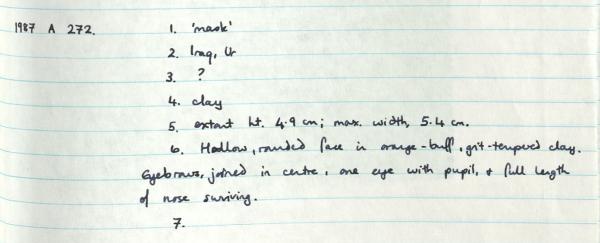 1987 A 272. 1. 'mask'
2. Iraq, Ur
3. ?
4. clay
5. extant ht. 4.9 cm; max. width, 5.4 cm.
6. Hollow, rounded face in orange-buff, grit-tempered clay.
Eyebrows, joined in centre, one eye with pupil, & full length
of nose surviving.
7.